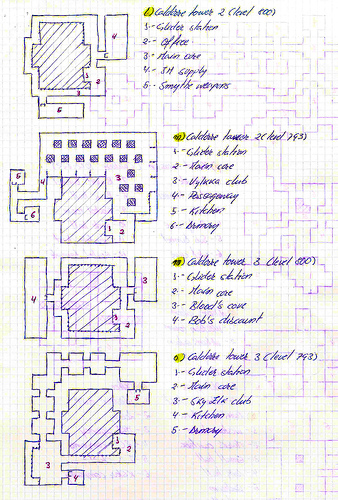 l) Caldorre tower 2 (level 800)
1.- Glider station
2.- Office
3.- Main core
4.- SH supply
5.- Smythe weapons
4
1
2
3
5
m) Caldorre tower 2 (level 793)
1.- Glider station
2.- Main core
3.- club
4.-
5.- Kitchen
6.- Armory
5
4
3
6
1
2
n) Caldorre tower 3 (level 800)
1.- Glider station
2.- Main core
3.- Blood's core
4.- Bob's discount
3
4
1
2
o) Caldorre tower 3 (level 793)
1.- Glider station
2.- Main core
3.- Sky club
4.- Kitchen
5.- Armory
5
1
2
3
4